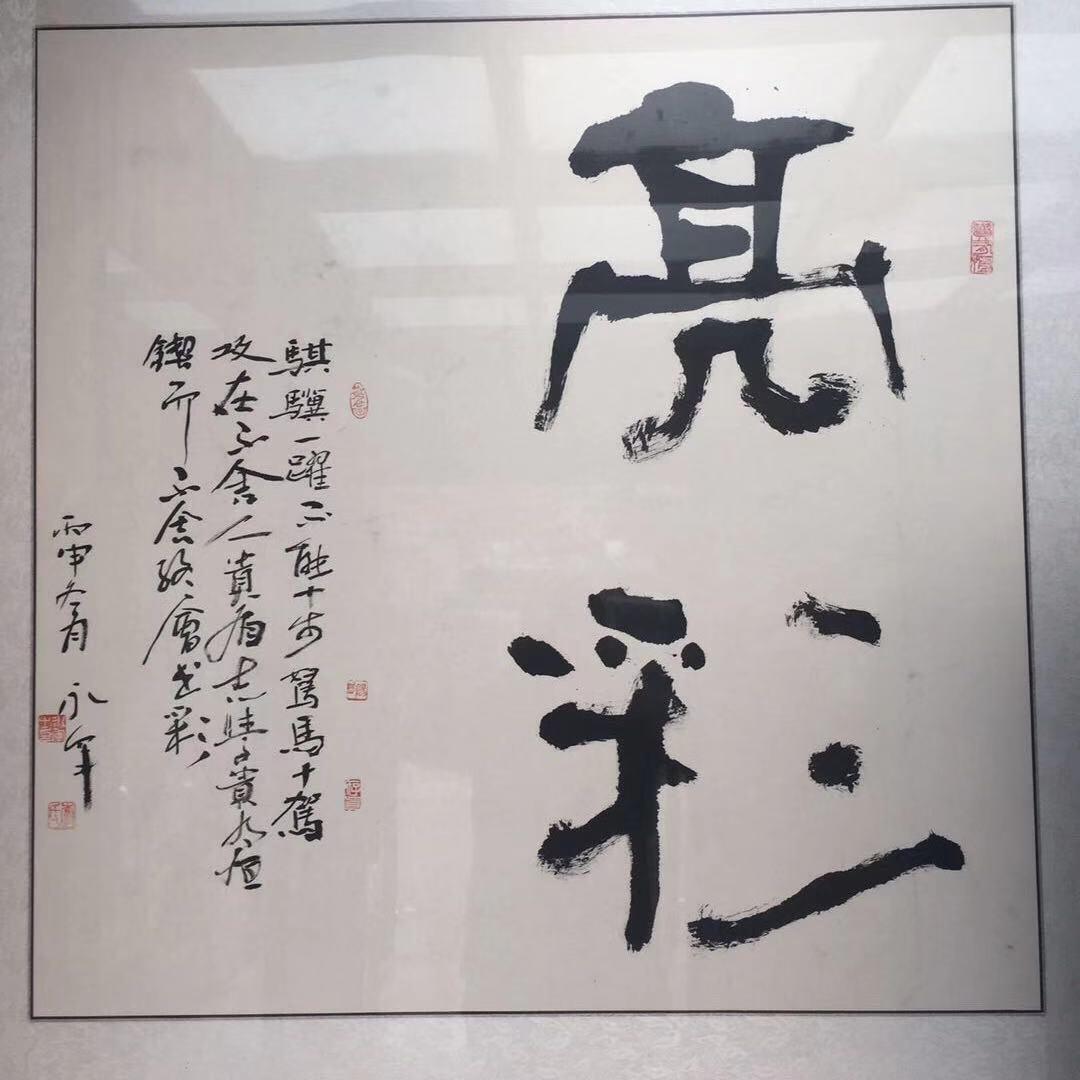 亮彩
騏驥一躍不能十步駑馬十駕
攻在不舍人貴有志學貴有恒
鍥而不舍終會出彩
丙申冬月 永年